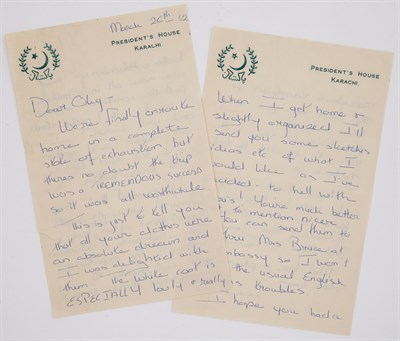 March 26th 62
PRESIDENT'S HOUSE
KARACHI.
Dear Oleg -
We're finally enroute
home in a complete
state of exhaustion but
theres no doubt the trip
was a TREMENDOUS success
so it was all worthwhile
This is just to tell you
that all your clothes were
an absolute dream and
I was delighted with
them - the white coat is
ESPECIALLY lovely & really is
PRESIDENT'S HOUSE
KARACHI.
When I get home &
slightly organised I'll
send you some sketches
ideas etc of what I
would like as I've
decided to hell with
You're much better
to mention nicer
You can send them to
Mrs
embassy so I won't
the usual English
troubles
I hope you had a